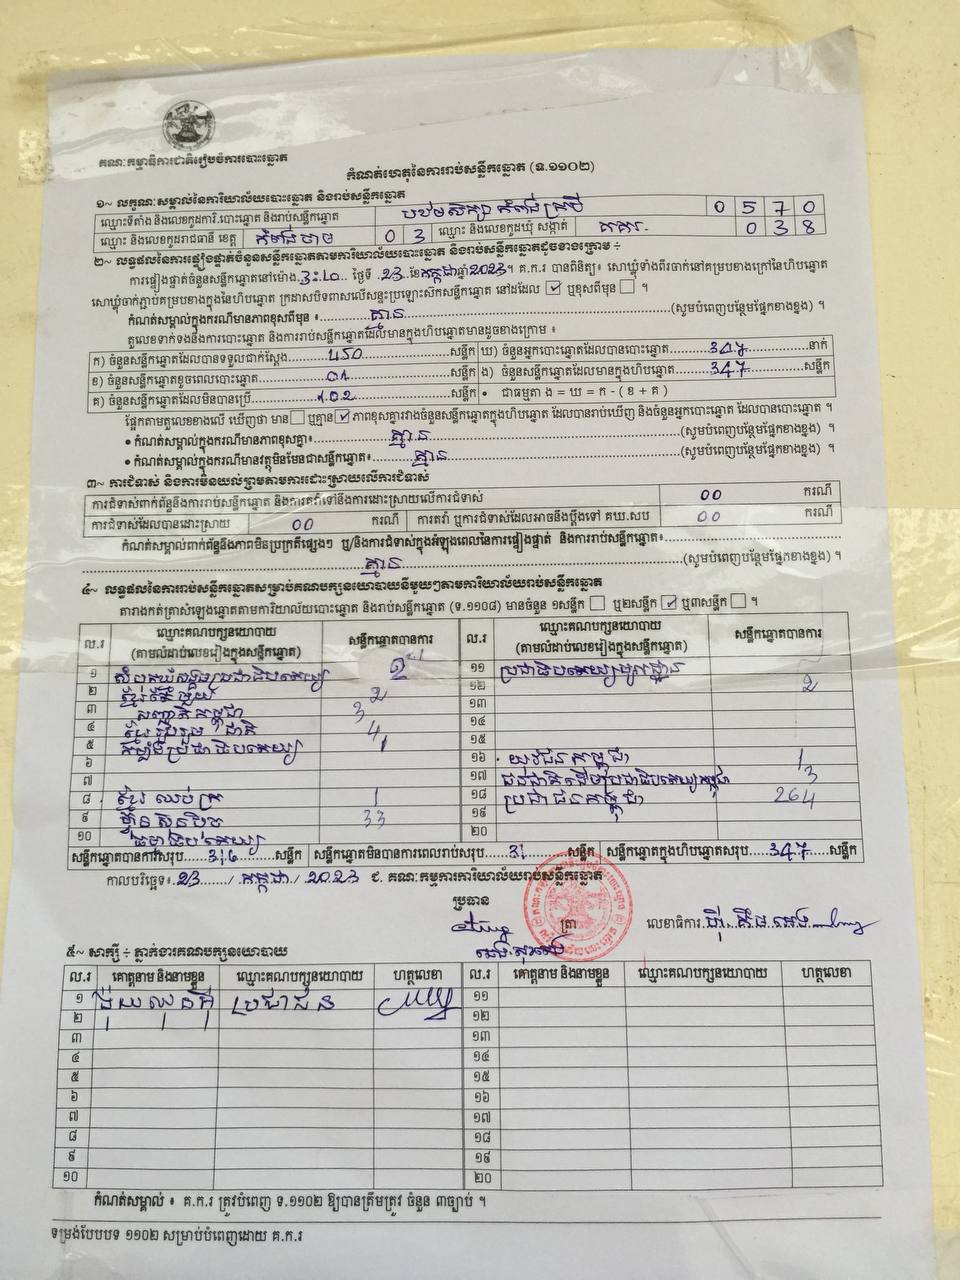 គណៈកម្មាធិការជាតិរៀបចំការបោះឆ្នោត
កំណត់ហេតុនៃការរាប់សន្លឹកឆ្នោត (ទ.១១០២)
១~ លក្ខណៈសម្គាល់នៃការិយាល័យបោះឆ្នោត និងរាប់សន្លឹកឆ្នោត
ឈ្មោះទីតាំង និងលេខកូដការិ.បោះឆ្នោត និងរាប់សន្លឹកឆ្នោត បឋមសិក្សា កំពង់ក្របី 0 5 7 0
ឈ្មោះ និងលេខកូដរាជធានី ខេត្ត កំពង់ចាម 0 3 ឈ្មោះ និងលេខកូដឃុំ សង្កាត់ គគរ 0 3 8
២~ លទ្ធផលនៃការផ្ទៀងផ្ទាត់ចំនួនសន្លឹកឆ្នោតតាមការិយាល័យបោះឆ្នោត និងរាប់សន្លឹកឆ្នោតដូចខាងក្រោម ÷
ការផ្ទៀងផ្ទាត់សន្លឹកឆ្នោតនៅម៉ោង 3:10 ថ្ងៃទី 23 ខែ កក្កដា ឆ្នាំ 2023 ។ គ.ក.រ បានពិនិត្យ៖ សោឃ្លុំទាំងពីរចាក់នៅគម្របខាងក្រៅនៃហិបឆ្នោត
សោឃ្លុំចាក់ភ្ជាប់គម្របខាងក្នុងនៃហិបឆ្នោត ក្រដាសបិទពាសលើសន្ទះប្រឡោះស៊កសន្លឹកឆ្នោត នៅដដែល ☑ ឬខុសពីមុន ☐ ។
កំណត់សម្គាល់ក្នុងករណីមានភាពខុសពីមុន ៖ គ្មាន (សូមបំពេញបន្ថែមផ្នែកខាងខ្នង) ។
តួលេខទាក់ទងនឹងការបោះឆ្នោត និងការរាប់សន្លឹកឆ្នោតដែលមានក្នុងហិបឆ្នោតមានដូចខាងក្រោម ៖
ក) ចំនួនសន្លឹកឆ្នោតដែលបានទទួលជាក់ស្តែង 450 សន្លឹក ឃ) ចំនួនអ្នកបោះឆ្នោតដែលបានបោះឆ្នោត 347 នាក់
ខ) ចំនួនសន្លឹកឆ្នោតខូចពេលបោះឆ្នោត 01 សន្លឹក ង) ចំនួនសន្លឹកឆ្នោតដែលមានក្នុងហិបឆ្នោត 347 សន្លឹក
គ) ចំនួនសន្លឹកឆ្នោតដែលមិនបានប្រើ 102 សន្លឹក • ជាធម្មតា ង = ឃ = ក - ( ខ + គ )
ផ្អែកតាមតួលេខខាងលើ ឃើញថា មាន ☐ ឬគ្មាន ☑ ភាពខុសគ្នារវាងចំនួនសន្លឹកឆ្នោតក្នុងហិបឆ្នោត ដែលបានរាប់ឃើញ និងចំនួនអ្នកបោះឆ្នោត ដែលបានបោះឆ្នោត ។
• កំណត់សម្គាល់ក្នុងករណីមានភាពខុសគ្នា៖ គ្មាន (សូមបំពេញបន្ថែមផ្នែកខាងខ្នង) ។
• កំណត់សម្គាល់ក្នុងករណីមានវត្ថុមិនមែនជាសន្លឹកឆ្នោត៖ គ្មាន (សូមបំពេញបន្ថែមផ្នែកខាងខ្នង) ។
៣~ ការជំទាស់ និងការមិនយល់ព្រមតាមការដោះស្រាយលើការជំទាស់
ការជំទាស់ពាក់ព័ន្ធនឹងការរាប់សន្លឹកឆ្នោត និងការតវ៉ាទៅនឹងការដោះស្រាយលើការជំទាស់ 00 ករណី
ការជំទាស់ដែលបានដោះស្រាយ 00 ករណី ការតវ៉ា ឬការជំទាស់ដែលអាចនឹងប្តឹងទៅ គឃ.សប 00 ករណី
កំណត់សម្គាល់ពាក់ព័ន្ធនឹងភាពមិនប្រក្រតីផ្សេងៗ ឬ/និងការជំទាស់ក្នុងអំឡុងពេលនៃការផ្ទៀងផ្ទាត់ និងការរាប់សន្លឹកឆ្នោត៖
គ្មាន (សូមបំពេញបន្ថែមផ្នែកខាងខ្នង) ។
៤~ លទ្ធផលនៃការរាប់សន្លឹកឆ្នោតសម្រាប់គណបក្សនយោបាយនីមួយៗតាមការិយាល័យរាប់សន្លឹកឆ្នោត
តារាងកត់ត្រាសំឡេងឆ្នោតតាមការិយាល័យបោះឆ្នោត និងរាប់សន្លឹកឆ្នោត (ទ.១១០៨) មានចំនួន ១សន្លឹក ☐ ឬ២សន្លឹក ☑ ឬ៣សន្លឹក ☐ ។
ល.រ ឈ្មោះគណបក្សនយោបាយ (តាមលំដាប់លេខរៀងក្នុងសន្លឹកឆ្នោត) សន្លឹកឆ្នោតបានការ ល.រ ឈ្មោះគណបក្សនយោបាយ (តាមលំដាប់លេខរៀងក្នុងសន្លឹកឆ្នោត) សន្លឹកឆ្នោតបានការ
១ សំបុកឃ្មុំសង្គមប្រជាធិបតេយ្យ ១១ ប្រជាធិបតេយ្យមូលដ្ឋាន
២ ខ្មែរតែមួយ 2 ១២ 2
៣ សញ្ជាតិកម្ពុជា 3 ១៣
៤ ខ្មែររួបរួមជាតិ 4 ១៤
៥ កម្លាំងប្រជាធិបតេយ្យ 1 ១៥
៦ ១៦ យុវជនកម្ពុជា 1
៧ ១៧ ជនជាតិដើមប្រជាធិបតេយ្យកម្ពុជា 3
៨ ខ្មែរឈប់ក្រ 1 ១៨ ប្រជាជនកម្ពុជា 264
៩ ហ្វ៊ុនស៊ិនប៉ិច 33 ១៩
១០ ធម្មាធិបតេយ្យ ២០
សន្លឹកឆ្នោតបានការសរុប 316 សន្លឹក សន្លឹកឆ្នោតមិនបានការពេលរាប់សរុប 31 សន្លឹក សន្លឹកឆ្នោតក្នុងហិបឆ្នោតសរុប 347 សន្លឹក
កាលបរិច្ឆេទ៖ 23 / កក្កដា / 2023 ជ. គណៈកម្មការការិយាល័យរាប់សន្លឹកឆ្នោត
ប្រធាន ត្រា លេខាធិការ
៥~ សាក្សី ÷ ភ្នាក់ងារគណបក្សនយោបាយ
ល.រ គោត្តនាម និងនាមខ្លួន ឈ្មោះគណបក្សនយោបាយ ហត្ថលេខា ល.រ គោត្តនាម និងនាមខ្លួន ឈ្មោះគណបក្សនយោបាយ ហត្ថលេខា
១ ប្រជាជន ១១
២ ១២
៣ ១៣
៤ ១៤
៥ ១៥
៦ ១៦
៧ ១៧
៨ ១៨
៩ ១៩
១០ ២០
កំណត់សម្គាល់ ៖ គ.ក.រ ត្រូវបំពេញ ទ.១១០២ ឱ្យបានត្រឹមត្រូវ ចំនួន ៣ច្បាប់ ។
ទម្រង់បែបបទ ១១០២ សម្រាប់បំពេញដោយ គ.ក.រ